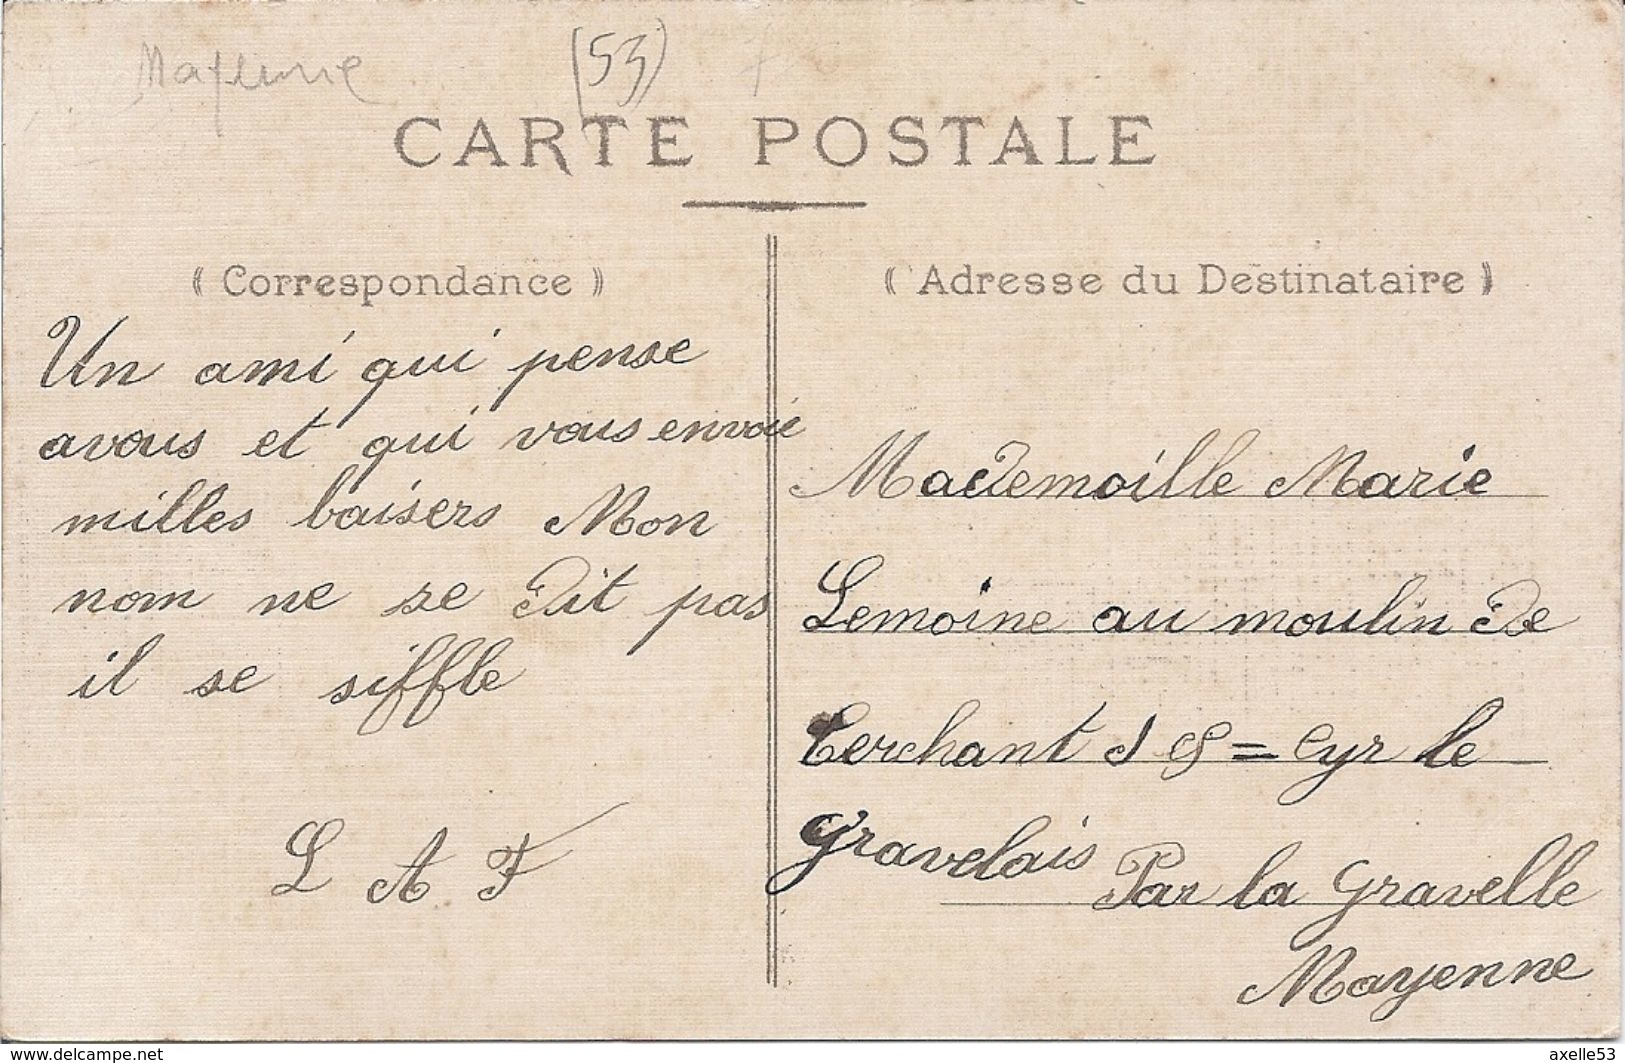 Mayenne (53)
CARTE POSTALE
( Correspondance )
Un ami qui pense
avous et qui vous envoie
milles baisers Mon
nom ne se dit pas
il se siffle
L A F
( Adresse du Destinataire )
Mademoille Marie
Lemoine au moulin de
Cerchant S = Cyr le
gravelais Par la gravelle
Mayenne
www.delcampe.net
axelle53